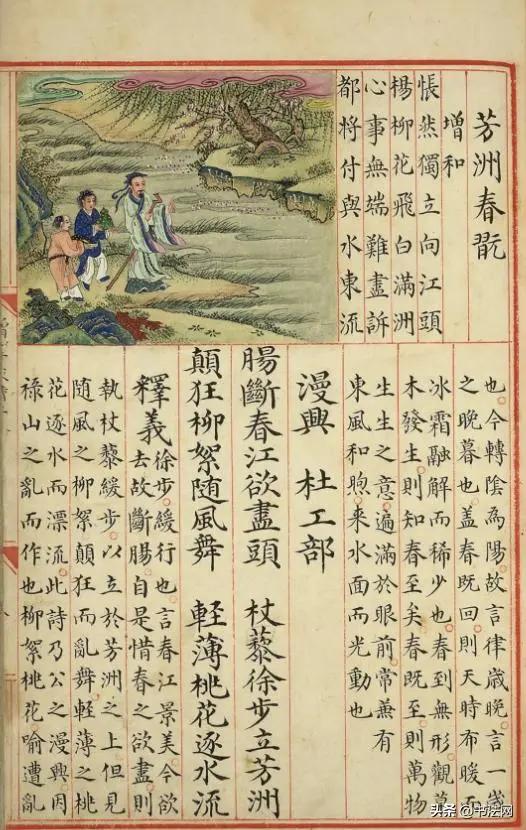 芳洲春翫
增和
悵然獨立向江頭
楊柳花飛白滿洲
心事無端難盡訴
都將付與水東流
也今轉陰為陽故言律歲晚言一歲
之晚暮也蓋春既回則天時布暖而
冰霜融解而稀少也春到無形觀草
木發生則知春至矣春既至則萬物
生生之意遍滿於眼前常兼有
東風和煦來水面而光動也
漫興 杜工部
腸斷春江欲盡頭 杖藜徐步立芳洲
顛狂柳絮随風舞 輕薄桃花逐水流
釋義
徐步緩行也言春江景美今欲
去故斷腸自是惜春之欲盡則
執杖藜緩步以立於芳洲之上但見
随風之柳絮顛狂而亂舞輕薄之桃
花逐水而漂流此詩乃公之漫興因
祿山之亂而作也柳絮桃花喻遭亂
头条 @书法网